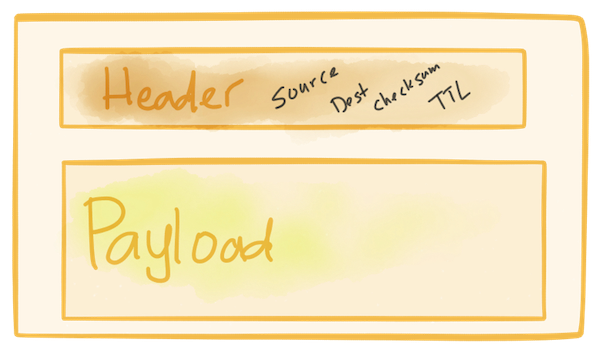 Header Source Dest checksum TTL
Payload